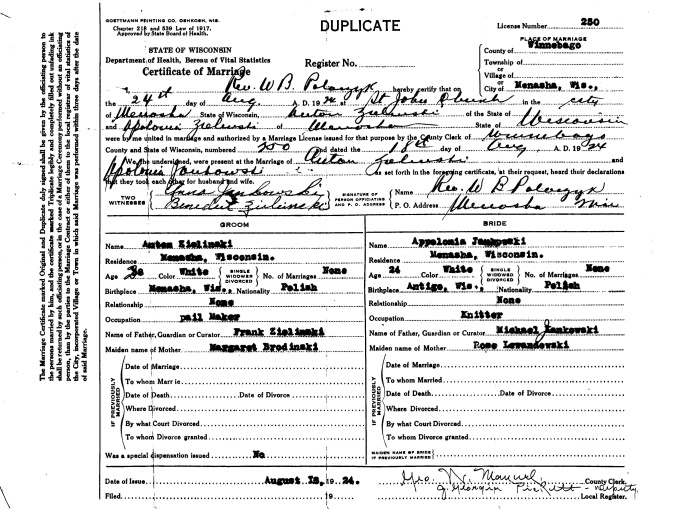 GOETTMANN PRINTING CO. OSHKOSH, WIS.
Chapter 218 and 539 Law of 1917.
Approved by State Board of Health.
DUPLICATE
License Number 250
STATE OF WISCONSIN
Department of Health, Bureau of Vital Statistics
Certificate of Marriage
Register No.
PLACE OF MARRIAGE
County of Winnebago
Township of
or
Village of
or
City of Menasha, Wis.,
Rev. W B. Polaczyk hereby certify that on
the 24th day of Aug A. D. 1924 at St Johns Church in the city
of Menasha State of Wisconsin, Anton Zielinski of Menasha State of Wisconsin
and Apolonia Zielinski of Menasha State of Wisconsin
were by me united in marriage and authorized by a Marriage License issued for that purpose by the County Clerk of Winnebago
County and State of Wisconsin, numbered 250 and dated the 18th day of Aug A. D. 1924
We, the undersigned, were present at the Marriage of Anton Zielinski and
Apolonia Jankowski As set forth in the foregoing certificate, at their request, heard their declarations
that they took each other for husband and wife.
TWO WITNESSES
Anna Jankowski
Benedict Zielinski
SIGNATURE OF PERSON OFFICIATING AND P. O. ADDRESS
Name Rev. W B Polaczyk
P. O. Address Menasha Wis
GROOM
Name Anton Zielinski
Residence Menasha, Wisconsin.
Age 26 Color White SINGLE WIDOWER DIVORCED No. of Marriages None
Birthplace Menasha, Wis., Nationality Polish
Relationship None
Occupation pail Maker
Name of Father, Guardian or Curator Frank Zielinski
Maiden name of Mother Margaret Brodinski
IF PREVIOUSLY MARRIED
Date of Marriage
To whom Married
Date of Death Date of Divorce
Where Divorced
By what Court Divorced
To whom Divorce granted
Was a special dispensation issued No
BRIDE
Name Appolonia Jankowski
Residence Menasha, Wisconsin.
Age 24 Color White SINGLE WIDOWED DIVORCED No. of Marriages None
Birthplace Antigo, Wis., Nationality Polish
Relationship None
Occupation Knitter
Name of Father, Guardian or Curator Michael Jankowski
Maiden name of Mother Rose Lewandowski
IF PREVIOUSLY MARRIED
Date of Marriage
To whom Married
Date of Death Date of Divorce
Where Divorced
By what Court Divorced
To whom Divorce granted
MAIDEN NAME OF BRIDE IF PREVIOUSLY MARRIED
Date of Issue August 18, 1924.
Geo. W. Manuel County Clerk.
Filed 19
Georgia Pickett - Deputy
Local Register.
The Marriage Certificate marked Original and Duplicate duly signed shall be given by the officiating person to
the persons married by him, and the certificate marked Triplicate legibly and completely filled out unfading ink
shall be returned by such officiating person, or in the case of a Marriage Ceremony performed without an officiating
person, then by the parties to the Marriage Contract or either of them to the local registrar of vital statistics of
the City, incorporated Village or Town in which said Marriage was performed within three days after the date
of said Marriage.